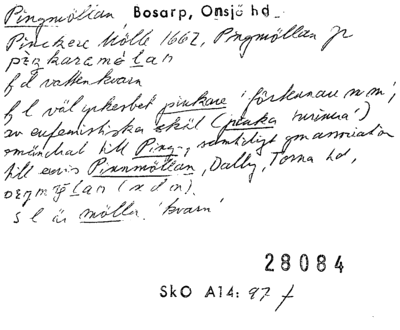 Pingmöllan, Bosarp, Onsjö hd
Pinckere Mölle 1662, Pngmöllan jr
f d vattenkvarn
f l väl yrkesbet pinkare 'förtennare m m',
av eufemistiska skäl (pinka 'urinera')
omändrat till Ping-, samtidigt gm association
till ev. Pinnmöllan, Dalby, Torna hd,
s l är mölla 'kvarn'
28084
SkO A14: 97 f